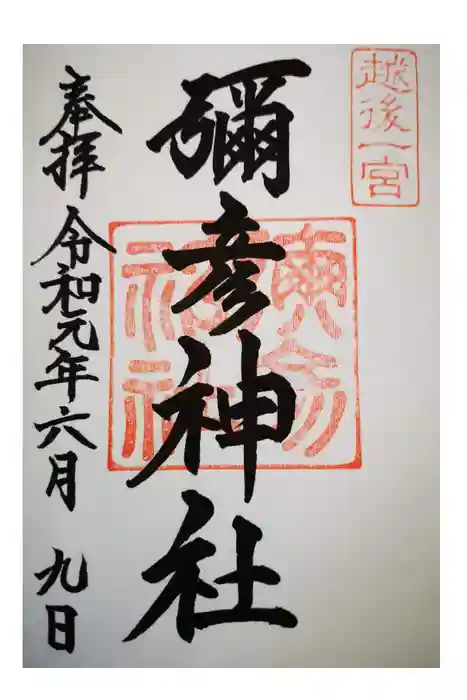 越後一宮
彌彦神社
奉拝 令和元年六月 九日